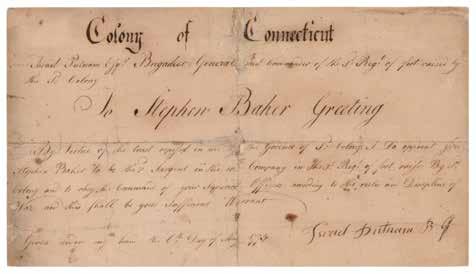 Colony of Connecticut
Israel Putnam Esqr. Brigadier General and Commander of the 3d Regt. of foot raised by
this Sd. Colony
To Stephen Baker Greeting
By Virtue of the trust reposed in me the Governor of Sd. Colony I Do appoint you
Stephen Baker To be third Sargent in the Company in the 3d Regt. of foot raised By Sd.
Colony and to obey the Command of your Superour officers according to the rules and Discipline of
War and this shall be your Sufficient Warrant
Given under my hand the 6th Day of May 1775
Israel Putnam B G